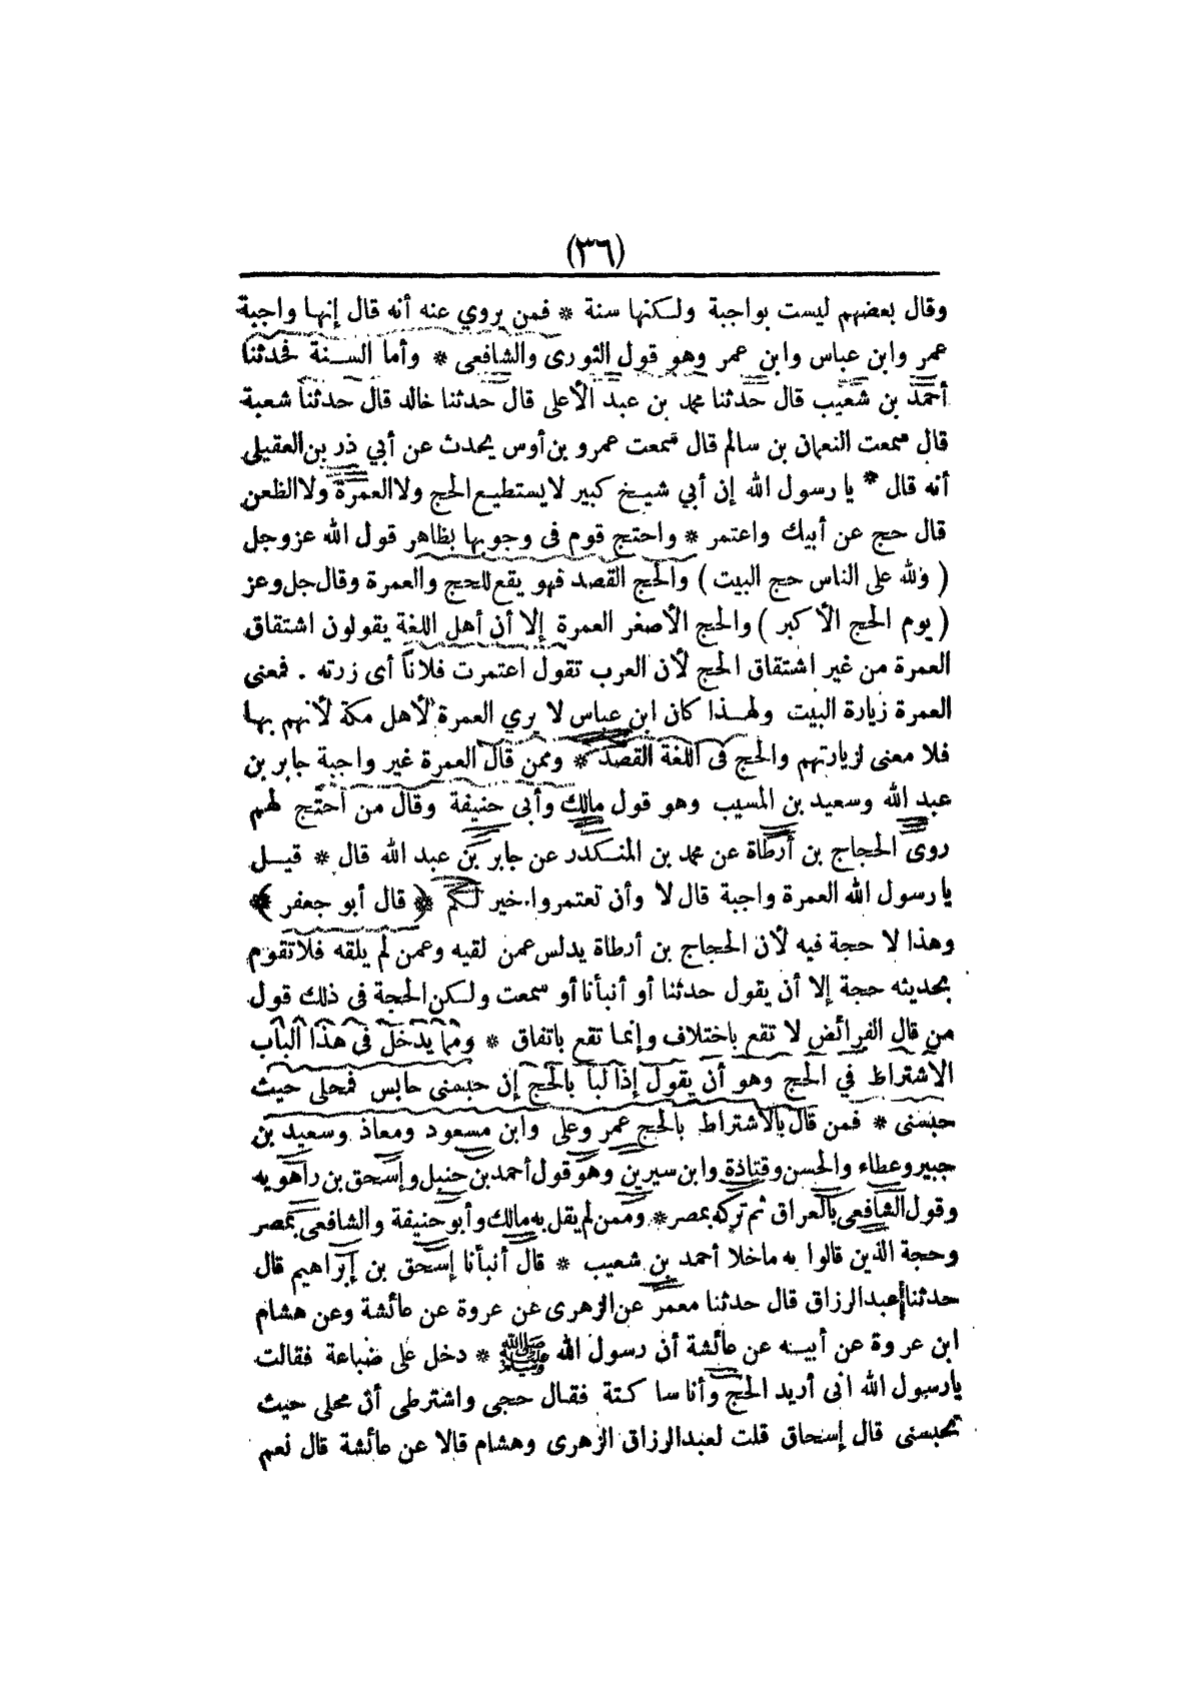 (٣٦)
وقال بعضهم ليست بواجبة ولكنها سنة * فمن روي عنه أنه قال إنها واجبة
عمر وابن عباس وابن عمر وهو قول الثورى والشافعى * وأما السنة فحدثنا
أحمد بن شعيب قال حدثنا محمد بن عبد الأعلى قال حدثنا خالد قال حدثنا شعبة
قال سمعت النعمان بن سالم قال سمعت عمرو بن أوس يحدث عن أبي ذر بن العقيلى
أنه قال * يا رسول الله إن أبي شيخ كبير لا يستطيع الحج ولا العمرة ولا الظعن
قال حج عن أبيك واعتمر * واحتج قوم فى وجوبها بظاهر قول الله عز وجل
( ولله على الناس حج البيت ) والحج القصد فهو يقع للحج والعمرة وقال جل وعز
( يوم الحج الأكبر ) والحج الأصغر العمرة إلا أن أهل اللغة يقولون اشتقاق
العمرة من غير اشتقاق الحج لأن العرب تقول اعتمرت فلاناً أى زرته . فمعنى
العمرة زيارة البيت ولهذا كان ابن عباس لا يري العمرة لأهل مكة لأنهم بها
فلا معنى لزيارتهم والحج فى اللغة القصد * وممن قال العمرة غير واجبة جابر بن
عبد الله وسعيد بن المسيب وهو قول مالك وأبى حنيفة وقال من احتج لهم
روى الحجاج بن أرطاة عن محمد بن المنكدر عن جابر بن عبد الله قال * قيل
يا رسول الله العمرة واجبة قال لا وأن تعتمروا خير لكم ﴿ قال أبو جعفر ﴾
وهذا لا حجة فيه لأن الحجاج بن أرطاة يدلس عمن لقيه وعمن لم يلقه فلا تقوم
بحديثه حجة إلا أن يقول حدثنا أو أنبأنا أو سمعت ولكن الحجة فى ذلك قول
من قال الفرائض لا تقع باختلاف وإنما تقع باتفاق * ومما يدخل فى هذا الباب
الاشتراط في الحج وهو أن يقول إذا لبا بالحج إن حبسنى حابس فمحلى حيث
حبسنى * فمن قال بالاشتراط بالحج عمر وعلى وابن مسعود ومعاذ وسعيد بن
جبير وعطاء والحسن وقتادة وابن سيرين وهو قول أحمد بن حنبل وإسحق بن راهويه
وقول الشافعى بالعراق ثم تركه بمصر * وممن لم يقل به مالك وأبو حنيفة والشافعى بمصر
وحجة الذين قالوا به ماخلا أحمد بن شعيب * قال أنبأنا إسحق بن إبراهيم قال
حدثنا عبد الرزاق قال حدثنا معمر عن الزهرى عن عروة عن عائشة وعن هشام
ابن عروة عن أبيه عن عائشة أن رسول الله ﷺ * دخل على ضباعة فقالت
يا رسول الله انى أريد الحج وأنا ساكتة فقال حجى واشترطى أن محلى حيث
تحبسنى قال إسحاق قلت لعبد الرزاق الزهرى وهشام قالا عن عائشة قال نعم